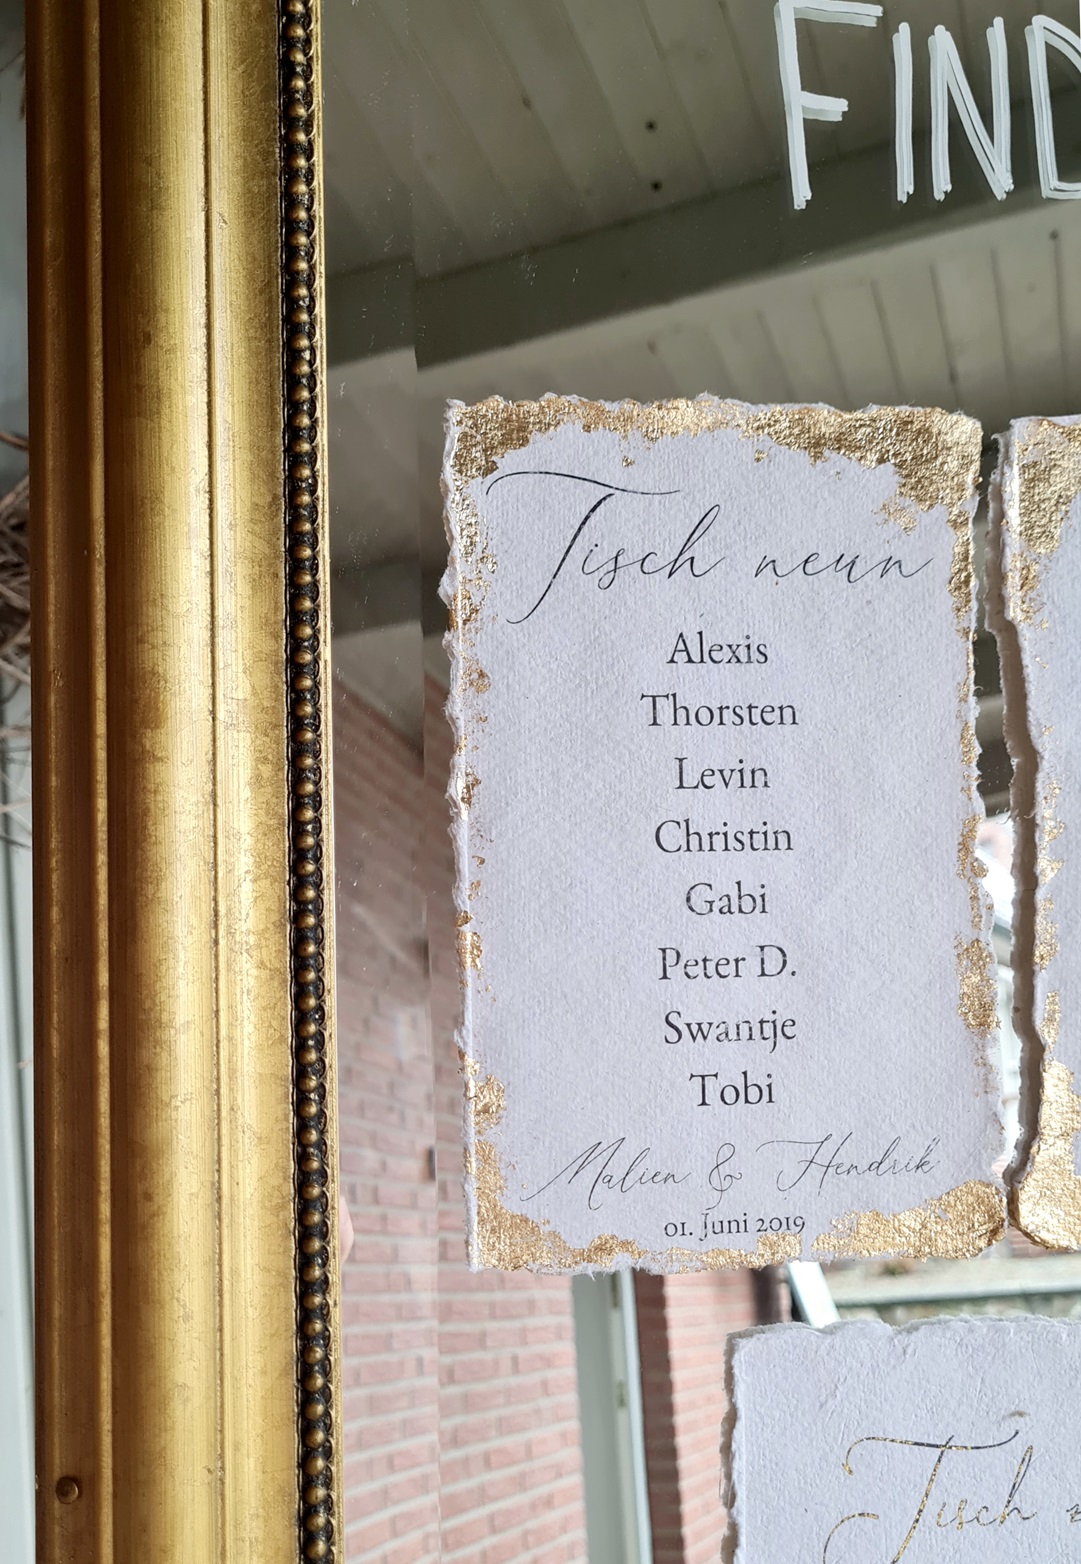 FIND
Tisch neun
Alexis
Thorsten
Levin
Christin
Gabi
Peter D.
Swantje
Tobi
Malien & Hendrik
01. Juni 2019
Tisch